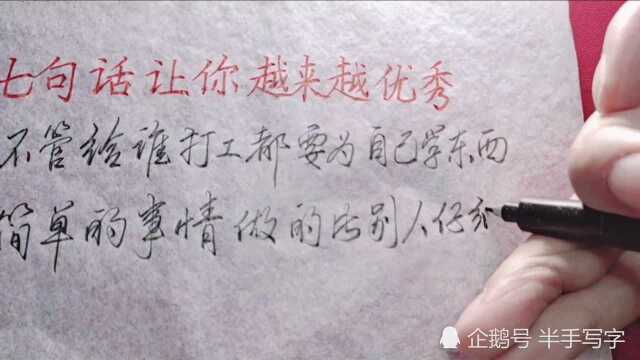 七句话让你越来越优秀
不管给谁打工都要为自己学东西
简单的事情做的比别人仔细
企鹅号 半手写字